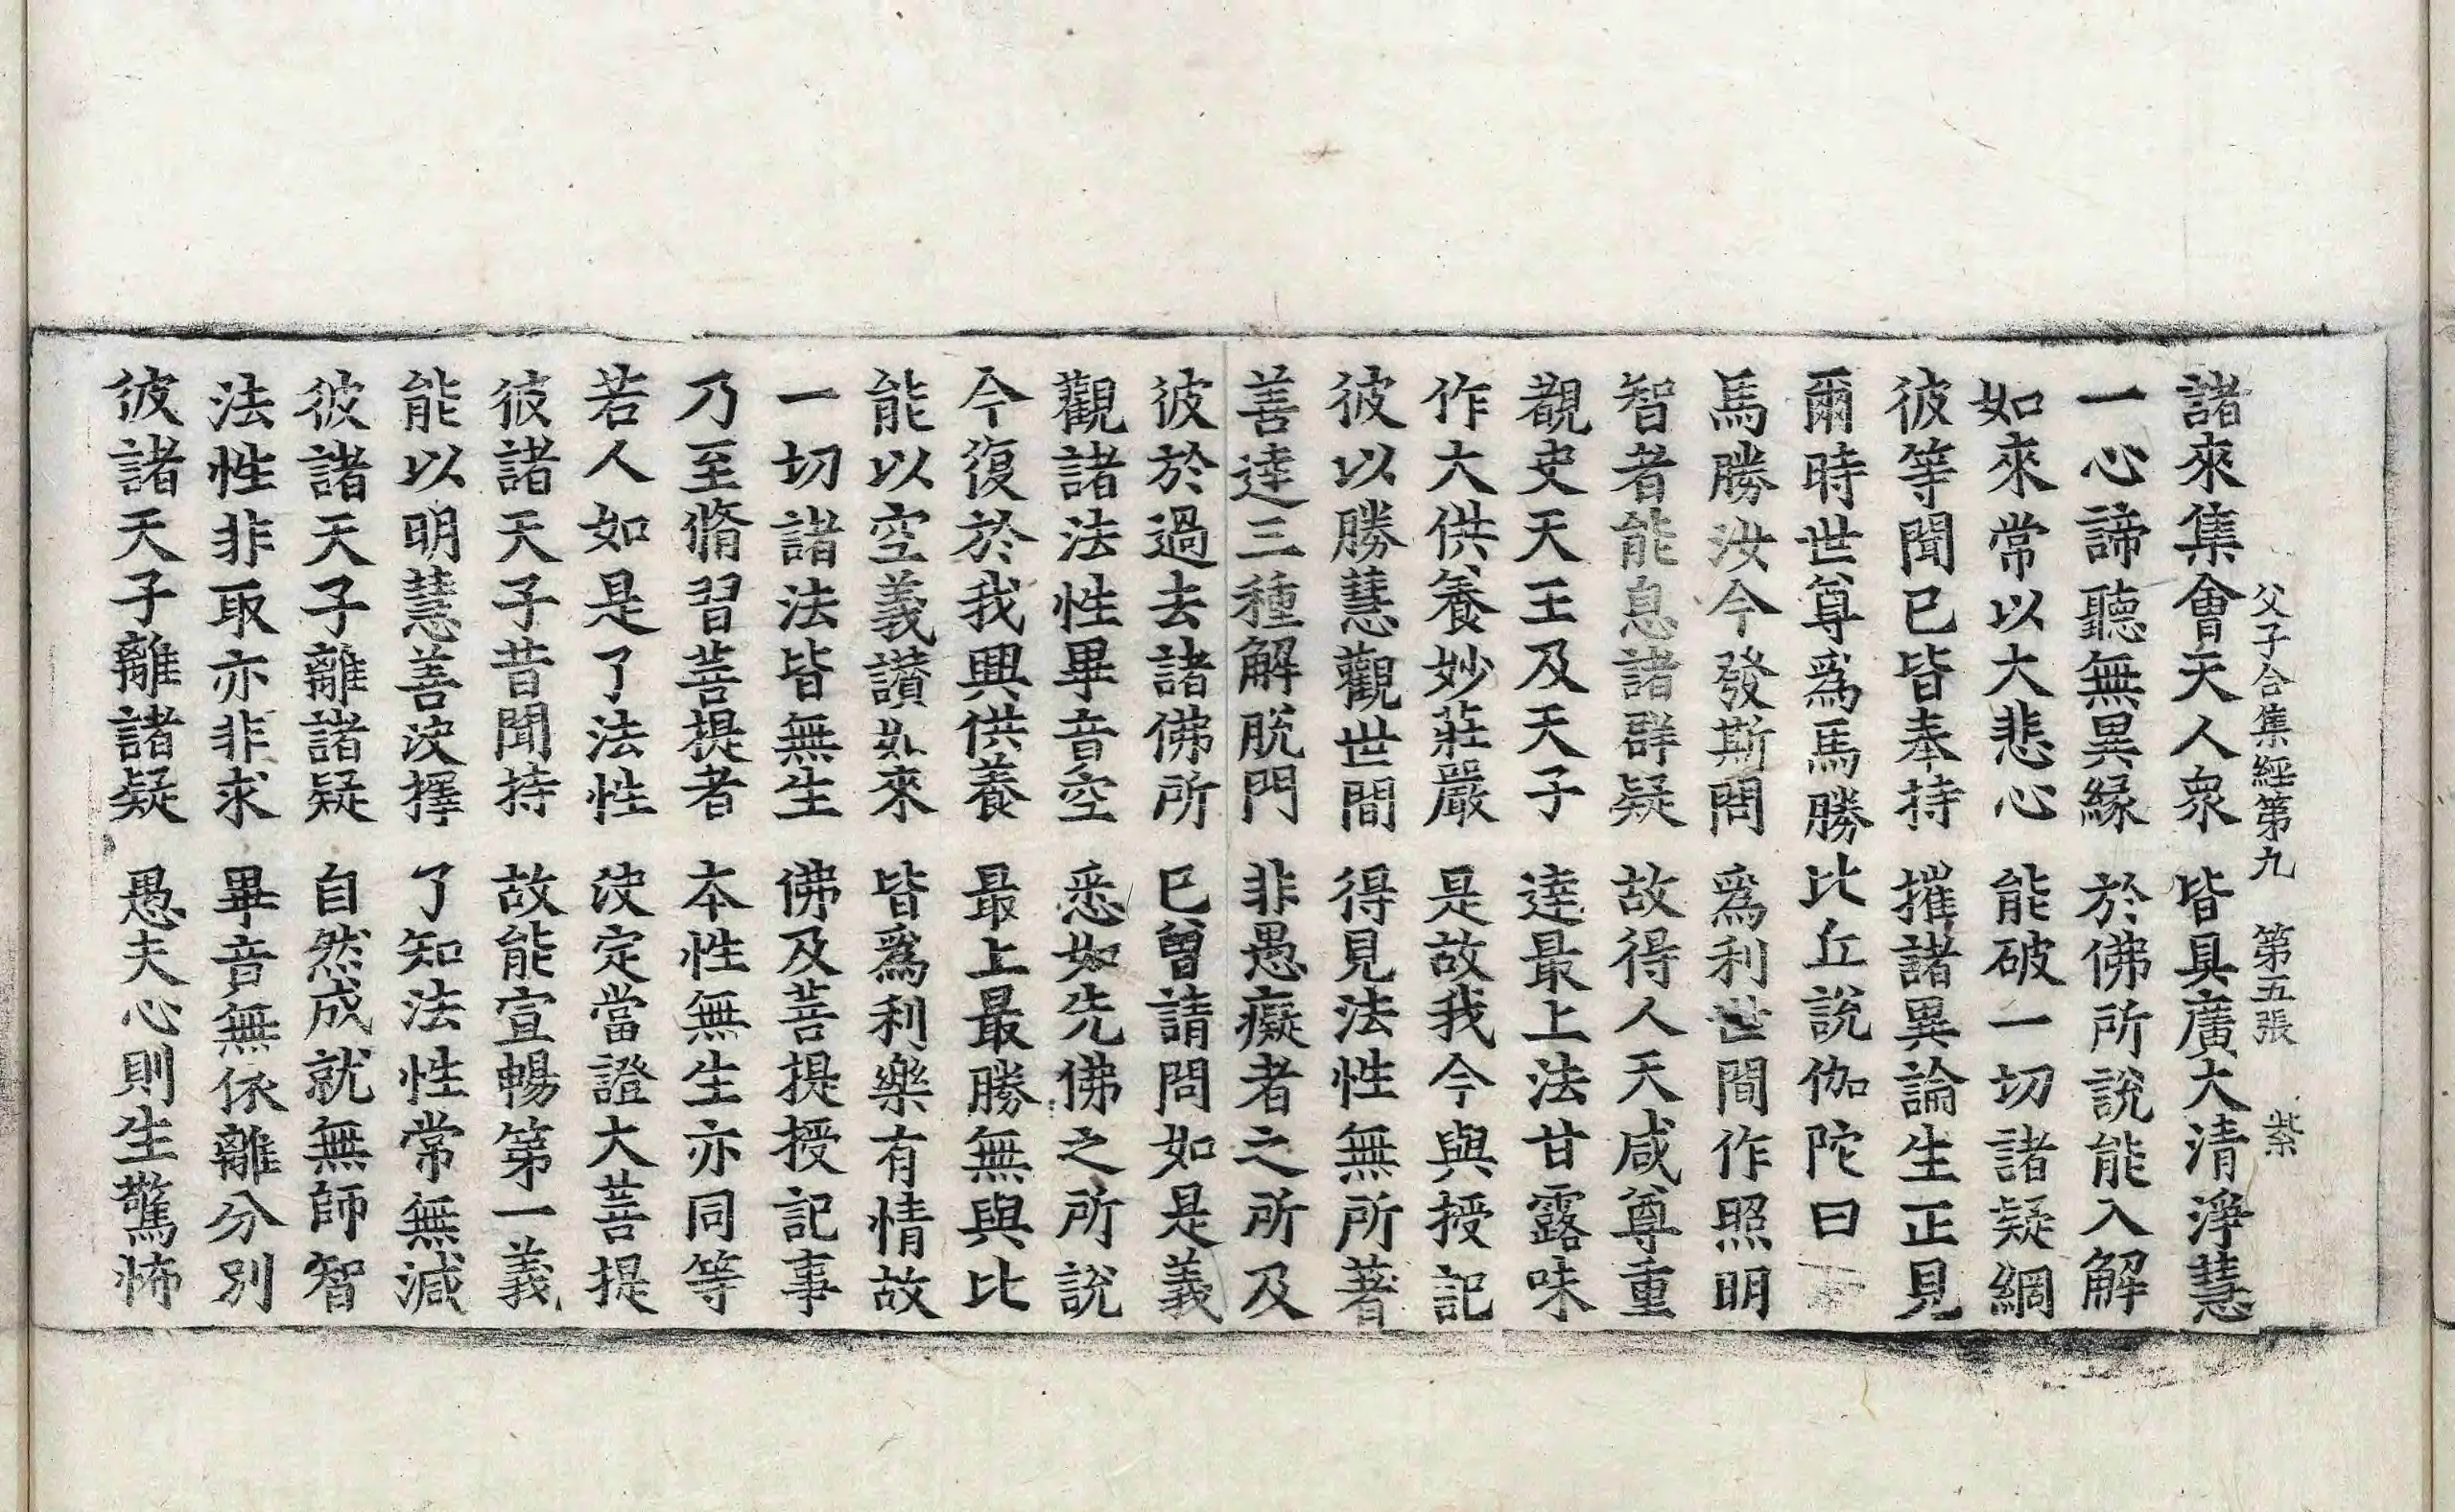 父子合集經第九 第五張 紫
諸來集會天人衆 皆具廣大清淨慧
一心諦聽無異緣 於佛所說能入解
如來常以大悲心 能破一切諸疑網
彼等聞已皆奉持 摧諸異論生正見
爾時世尊爲馬勝比丘說伽陀曰
馬勝汝今發斯問 爲利世間作照明
智者能息諸群疑 故得人天咸尊重
覩史天王及天子 達最上法甘露味
作大供養妙莊嚴 是故我今與授記
彼以勝慧觀世間 得見法性無所著
善達三種解脫門 非愚癡者之所及
彼於過去諸佛所 已曾請問如是義
觀諸法性畢竟空 悉如先佛之所說
今復於我興供養 最上最勝無與比
能以空義讚如來 皆爲利樂有情故
一切諸法皆無生 佛及菩提授記事
乃至脩習菩提者 本性無生亦同等
若人如是了法性 決定當證大菩提
彼諸天子昔聞持 故能宣暢第一義
能以明慧善決擇 了知法性常無減
彼諸天子離諸疑 自然成就無師智
法性非取亦非求 畢竟無依離分別
彼諸天子離諸疑 愚夫心則生驚怖